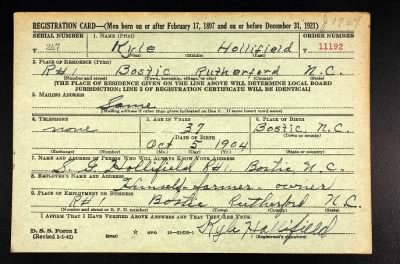 REGISTRATION CARD—(Men born on or after February 17, 1897 and on or before December 31, 1921)
SERIAL NUMBER 1. NAME (Print) ORDER NUMBER
T 247 Kyle Hollifield 11192
(First) (Middle) (Last)
2. PLACE OF RESIDENCE (Print)
R#1 Bostic Rutherford N.C.
(Number and street) (Town, township, village, or city) (County) (State)
[THE PLACE OF RESIDENCE GIVEN ON THE LINE ABOVE WILL DETERMINE LOCAL BOARD
JURISDICTION; LINE 2 OF REGISTRATION CERTIFICATE WILL BE IDENTICAL]
3. MAILING ADDRESS
Same
[Mailing address if other than place indicated on line 2. If same insert word same]
4. TELEPHONE 5. AGE IN YEARS 6. PLACE OF BIRTH
none 37 Bostic N.C.
DATE OF BIRTH (Town or county)
Oct 5 1904
(Exchange) (Number) (Mo.) (Day) (Yr.) (State or country)
7. NAME AND ADDRESS OF PERSON WHO WILL ALWAYS KNOW YOUR ADDRESS
G Hollifield R#1, Bostic N.C.
8. EMPLOYER'S NAME AND ADDRESS
Himself farmer owner
9. PLACE OF EMPLOYMENT OR BUSINESS
R#1 Bostic Rutherford N.C.
(Number and street or R. F. D. number) (Town) (County) (State)
I AFFIRM THAT I HAVE VERIFIED ABOVE ANSWERS AND THAT THEY ARE TRUE.
D. S. S. Form 1
(Revised 1-1-42) (over) GPO Kyle Hollifield
(Registrant's signature)